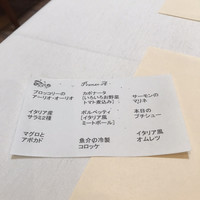 ブロッコリーの
アーリオ・オーリオ
カポナータ
[いろいろお野菜
トマト煮込み]
サーモンの
マリネ
イタリア産
サラミ2種
ポルペッティ
[イタリア風
ミートボール]
本日の
プチシュー
マグロと
アボカド
魚介の冷製
コロッケ
イタリア風
オムレツ